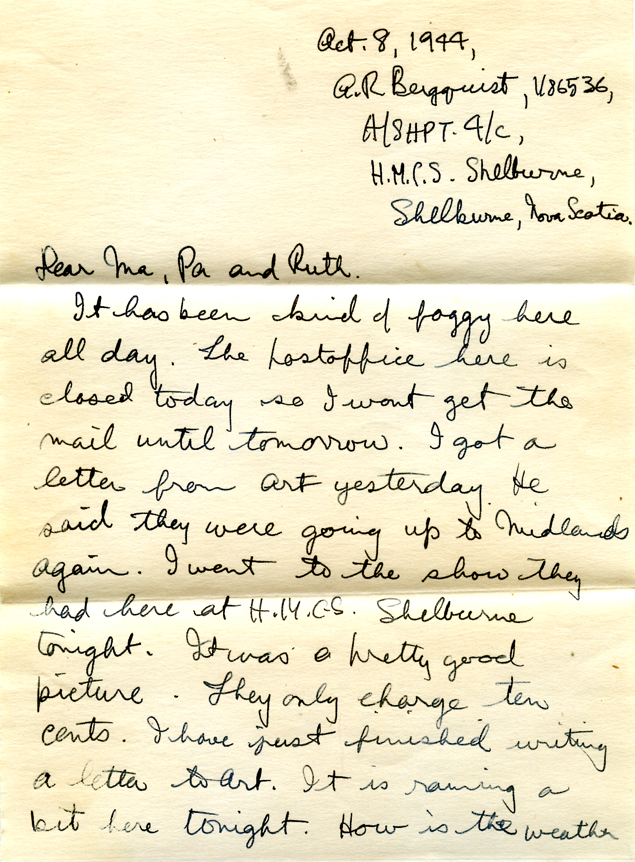 Oct. 8, 1944,
A.R Bergquist, V86536,
A/SHPT. 4/c,
H.M.C.S. Shelburne,
Shelburne, Nova Scotia.
Dear Ma, Pa and Ruth.
It has been kind of foggy here
all day. The postoffice here is
closed today so I wont get the
mail until tomorrow. I got a
letter from Art yesterday. He
said they were going up to Midlands
again. I went to the show they
had here at H.M.C.S. Shelburne
tonight. It was a pretty good
picture. They only charge ten
cents. I have just finished writing
a letter to Art. It is raining a
bit here tonight. How is the weather